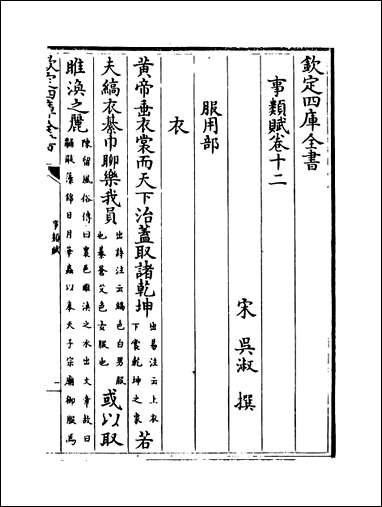 欽定四庫全書
事類賦卷十二
宋 吳淑 撰
服用部
衣
黄帝垂衣裳而天下治蓋取諸乾坤出易注云上衣下裳乾坤之衷若
夫縞衣綦巾聊樂我員出詩注云縞色白男服也綦蒼艾色女服也或以取
睢渙之麗陳留風俗傳曰襄邑睢渙之水出文章故曰黼黻藻錦日月華蟲以奉天子宗廟御服焉
欽定四庫全書
事類賦
一